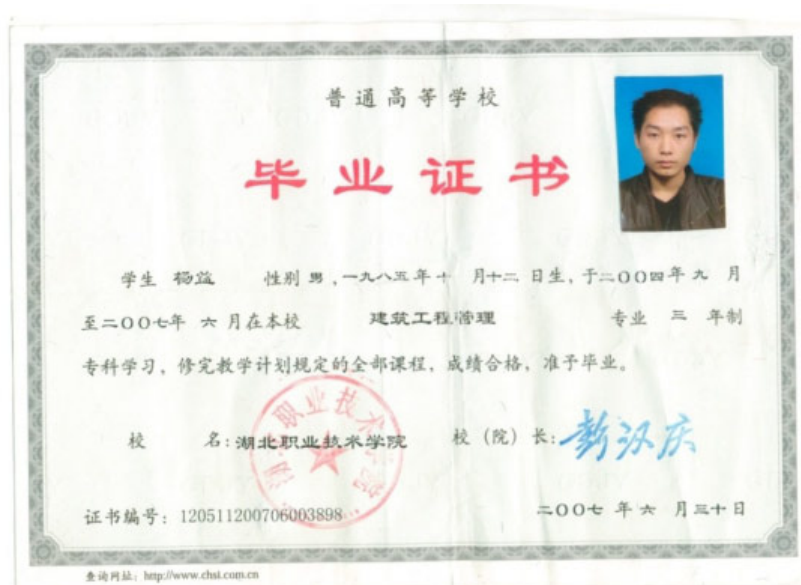 普通高等学校
毕业证书
学生 杨益 性别 男，一九八五年十 月十二 日生，于二〇〇四年 九 月
至二〇〇七年 六 月在本校 建筑工程管理 专业 三 年制
专科学习，修完教学计划规定的全部课程，成绩合格，准予毕业。
校 名：湖北职业技术学院 校（院）长：彭汉庆
证书编号：120511200706003898
二〇〇七 年 六 月三十日
查询网址：http://www.chsi.com.cn